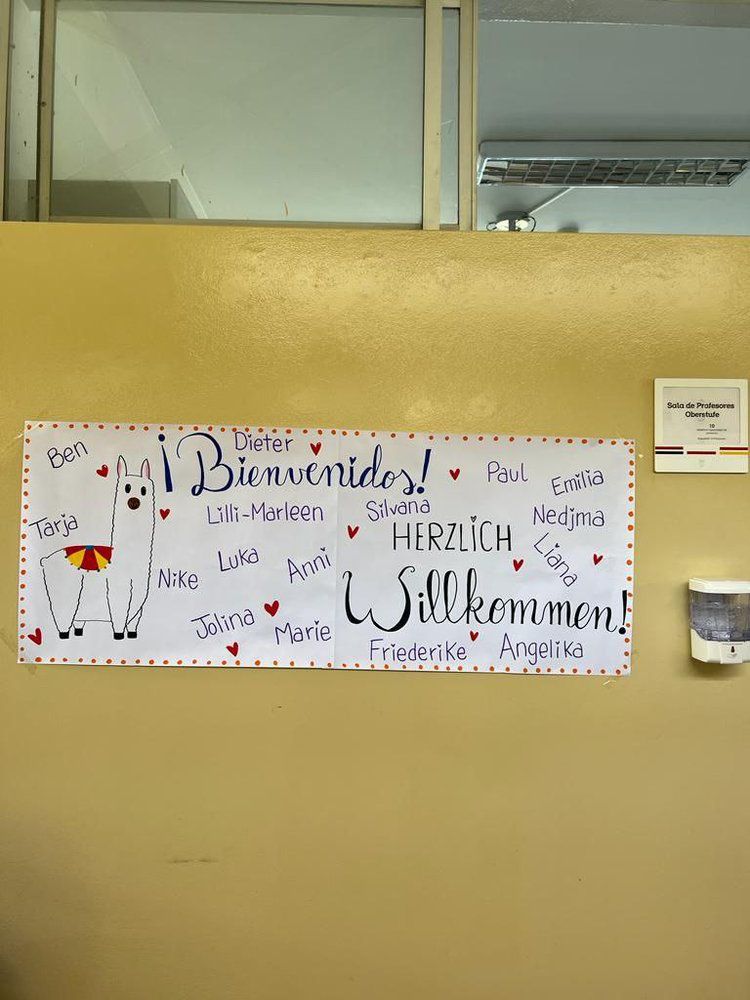 Ben
Dieter
¡Bienvenidos!
Paul
Emilia
Tarja
Lilli-Marleen
Silvana
Nedjma
HERZLICH
Luka
Anni
Liana
Nike
Willkommen!
Jolina
Marie
Friederike
Angelika
Sala de Profesores
Oberstufe
10